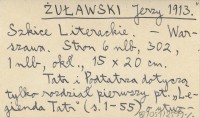 ŻUŁAWSKI Jerzy 1913.
Szkice Literackie. - War-
szawa. Stron 6 nlb, 302,
1 nlb, okł., 15 x 20 cm.
Tatr i Podtatrza dotyczą
tylko rozdział pierwszy pt. „Le-
gienda Tatr" (s. 1-55)